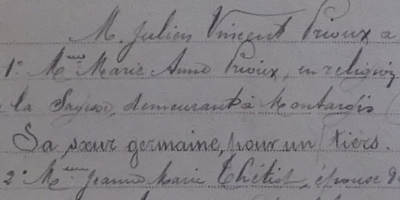 M. Julien Vincent Prioux a
1° Melle Marie Anne Prioux, en religion
la Sagesse, demeurant à Montargis
Sa sœur germaine, pour un tiers.
2° Mme Jeanne Marie Thétiot, épouse d